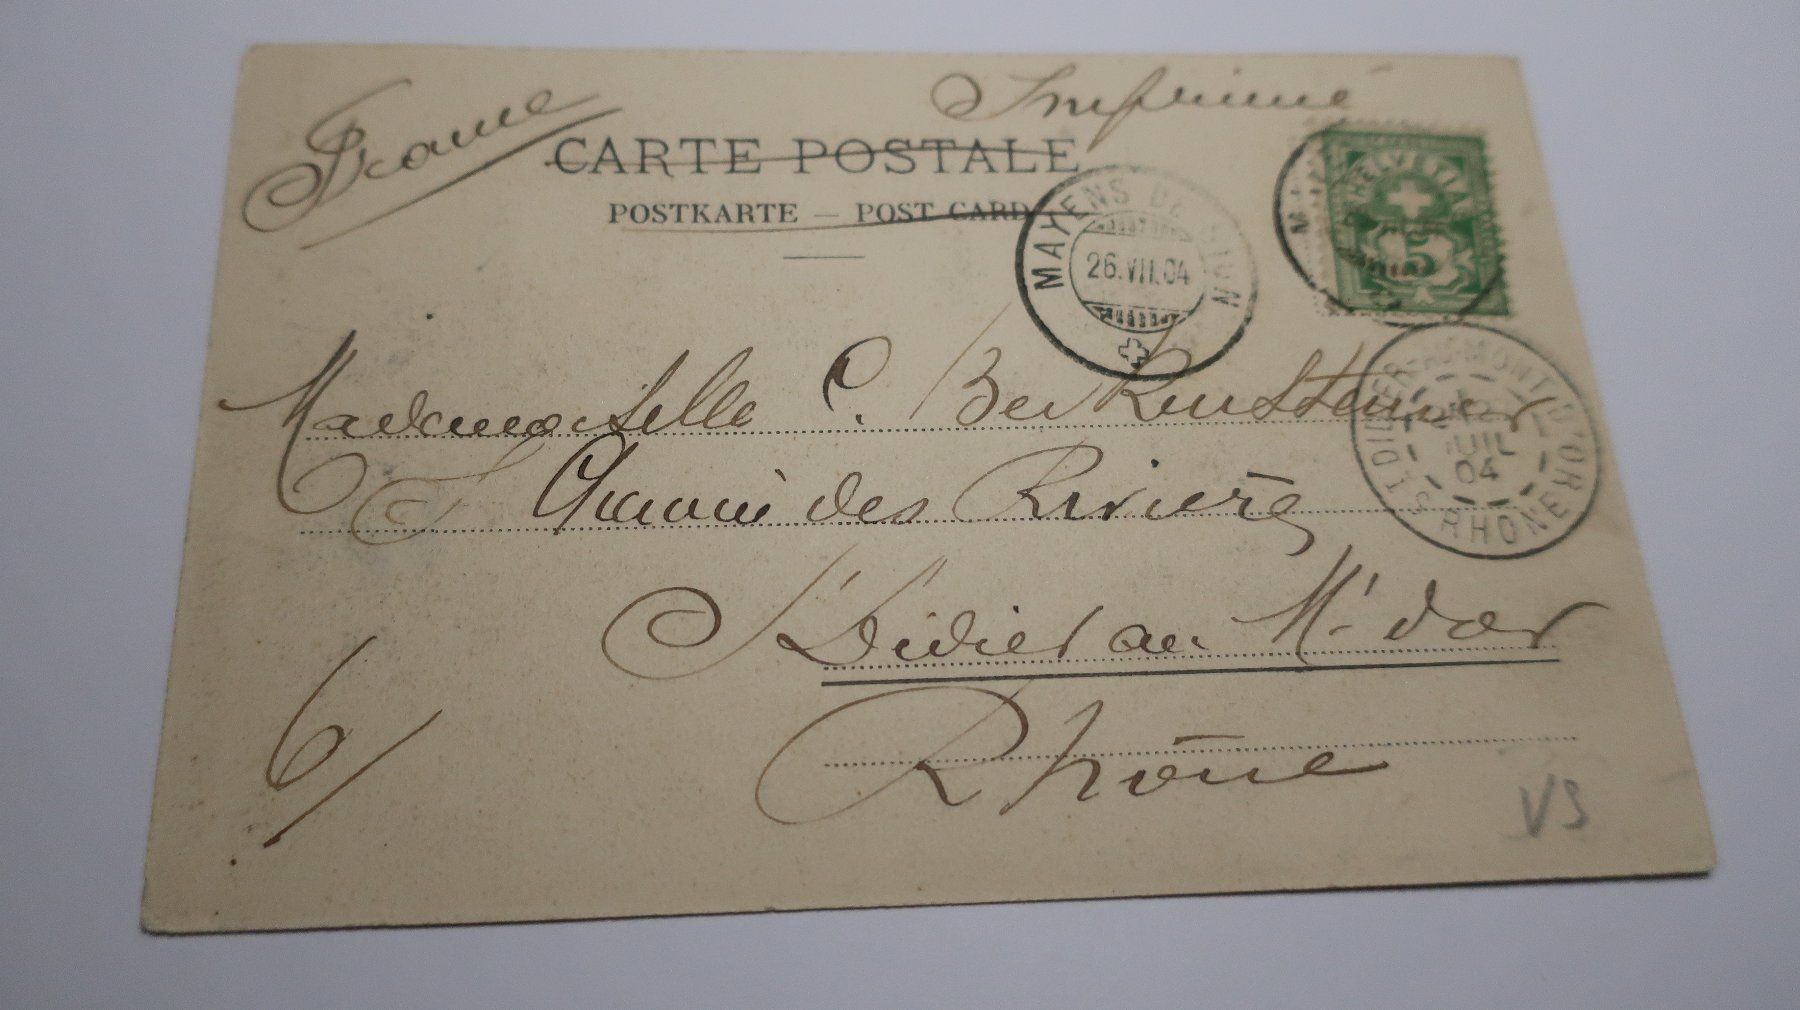 France
Imprimé
CARTE POSTALE
POSTKARTE — POST CARD
MAYENS DE SION
26.VII.04
HELVETIA
5
ST DIDIER AU MONT D'OR
JUIL
04
RHÔNE
Mademoiselle C.
Chemin des Rivières
St Didier au Mt d'or
Rhône
6
VS